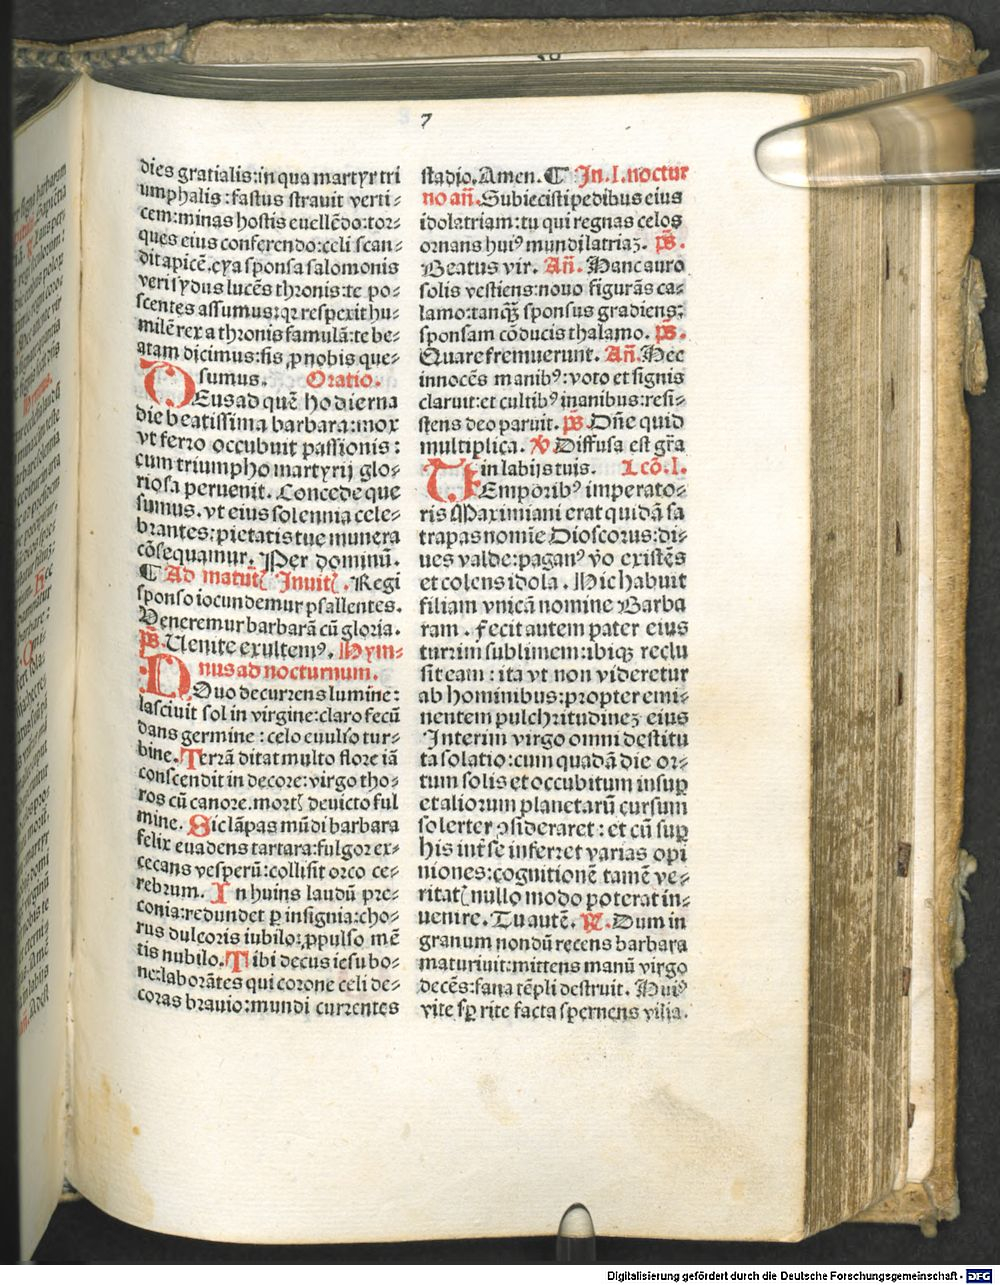 7
dies gratialis:in qua martyr tri
umphalis:fastus strauit verti⸗
cem:minas hostis euellẽdo:tor⸗
ques eius conferendo:celi scan⸗
dit apicẽ.eya sponsa salomonis
veri sydus lucẽs thronis:te po⸗
scentes assumus:qꝛ respexit hu⸗
milẽ rex a thronis famulã:te be⸗
atam dicimus:sis ꝓ nobis que⸗
sumus. Oratio.
DEus ad quẽ hodierna
die beatissima barbara:mox
vt ferro occubuit passionis:
cum triumpho martyrij glo⸗
riosa peruenit. Concede que
sumus.vt eius solennia cele⸗
brantes:pietatis tue munera
cõsequamur. Per dominũ.
¶ Ad matutꝭ Inuitꝭ. Regi
sponso iocundemur psallentes.
Veneremur barbarã cũ gloria.
ps̃. Uenite exultemꝰ. Hym⸗
nus ad nocturnum.
DDuo decurrens lumine:
lasciuit sol in virgine:claro fecũ
dans germine:celo euulso tur⸗
bine. Terrã ditat multo flore iã
conscendit in decore:virgo tho⸗
ros cũ canore.mortꝭ deuicto ful
mine. Sic lãpas mũdi barbara
felix euadens tartara:fulgor ex⸗
cecans vesperũ:collisit orco ce⸗
rebrum. In huius laudũ pre⸗
conia:redundet ꝑ insignia:cho⸗
rus dulcoris iubilo:ꝓpulso mẽ
tis nubilo. Tibi decus iesu bo⸗
ne:laborãtes qui corone celi de⸗
coras brauio:mundi currentes
stadio. Amen. ¶ In .I. noctur
no añ. Subiecisti pedibus eius
idolatriam:tu qui regnas celos
ornans huiꝰ mundi latriaꝫ. ps̃.
Beatus vir. Añ. Hanc auro
solis vestiens:nouo figurãs ca⸗
lamo:tanqꝫ̃ sponsus gradiens:
sponsam cõducis thalamo. ps̃.
Quare fremuerunt. Añ. Hec
innocẽs manibꝰ:voto et signis
claruit:et cultibꝰ inanibus:resi⸗
stens deo paruit. ps̃ Dñe quid
multiplica. ℣ Diffusa est gr̃a
in labijs tuis. Lcõ.I.
TEmporibꝰ imperato⸗
ris Maximiani erat quidã sa
trapas nomie Dioscorus:di⸗
ues valde:paganꝰ ṽo existẽs
et colens idola. Hic habuit
filiam vnicã nomine Barba
ram. Fecit autem pater eius
turrim sublimem:ibiqꝫ reclu
sit eam:ita vt non videretur
ab hominibus:propter emi⸗
nentem pulchritudineꝫ eius
Interim virgo omni destitu
ta solatio:cum quadã die or⸗
tum solis et occubitum insuꝑ
et aliorum planetarũ cursum
solerter ꝯsideraret:et cũ suꝑ
his int̃ se inferret varias opi
niones:cognitionẽ tamẽ ve⸗
ritatꝭ nullo modo poterat in⸗
uenire. Tu autẽ. ℟. Dum in
granum nondũ recens barbara
maturiuit:mittens manũ virgo
decẽs:fana tẽpli destruit. Huiꝰ
vite sꝑ rite facta spernens vilia.
Digitalisierung gefördert durch die Deutsche Forschungsgemeinschaft - DFG